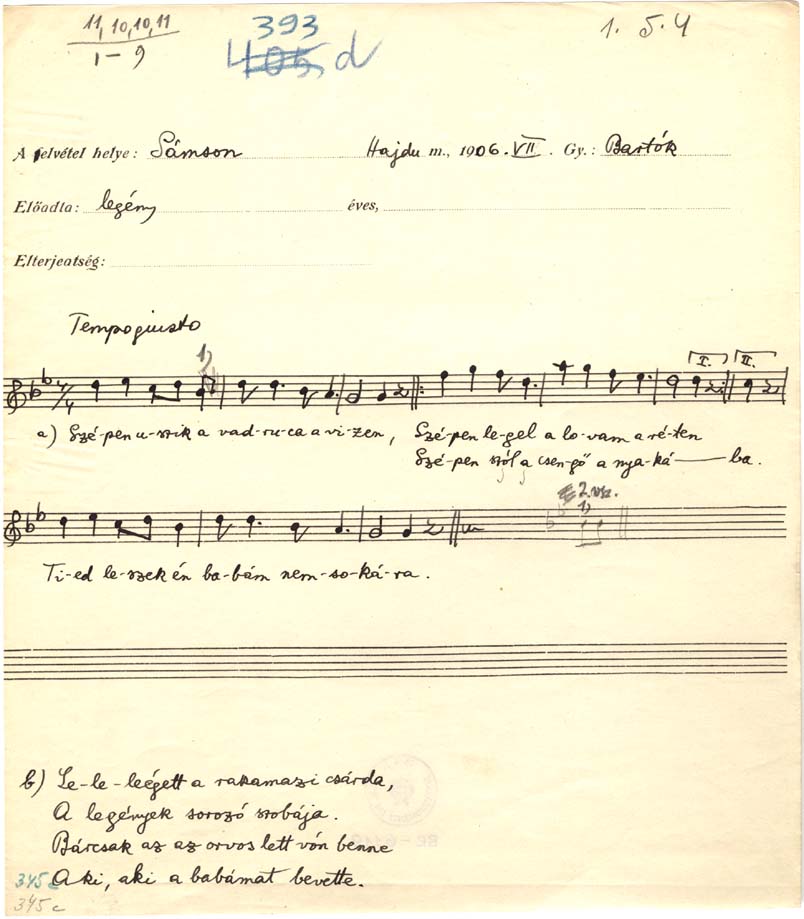 11, 10, 10, 11
1-9
393
405 d
1. 5. 4
A felvétel helye: Sámson Hajdu m., 1906. VII. Gy.: Bartók
Előadta: legény éves,
Elterjeatség:
Tempo giusto
1)
I. II.
4/4
a) Szé-pen u-szik a vad-ru-ca a vi-zen, Szé-pen le-gel a lo-vam a ré-ten
Szé-pen szól a csen-gő a nya-ká-ba.
2. vsz.
1)
Ti-ed le-szek én ba-bám nem-so-ká-ra.
b) Le-le-leégett a rakamazi csárda,
A legények sorozó szobája.
Bárcsak az az orvos lett vón benne
345 c Aki, aki a babámat bevette.
345 c